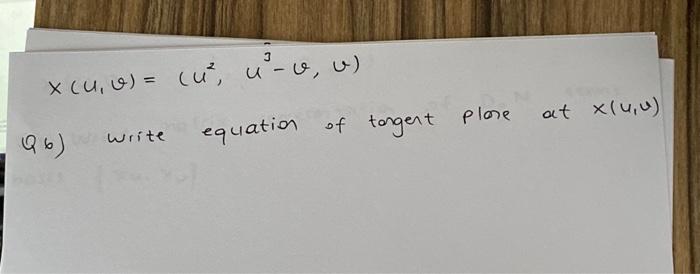 x(u,v) = (u², u³-v, v)
Qb) write equation of tangent plane at x(u,v)